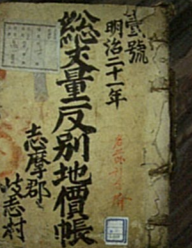 壹號
明治二十一年
総丈量反別地價帳
志摩郡
岐志村